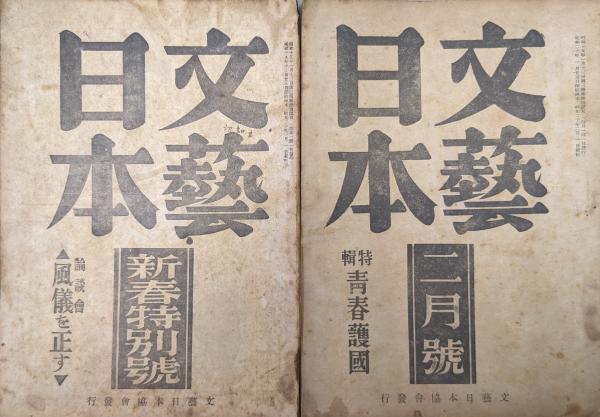 文藝
日本
新春特別號
論談會
▲風儀を正す▼
文藝日本協會發行
文藝
日本
二月號
特輯
青春護國
文藝日本協會發行